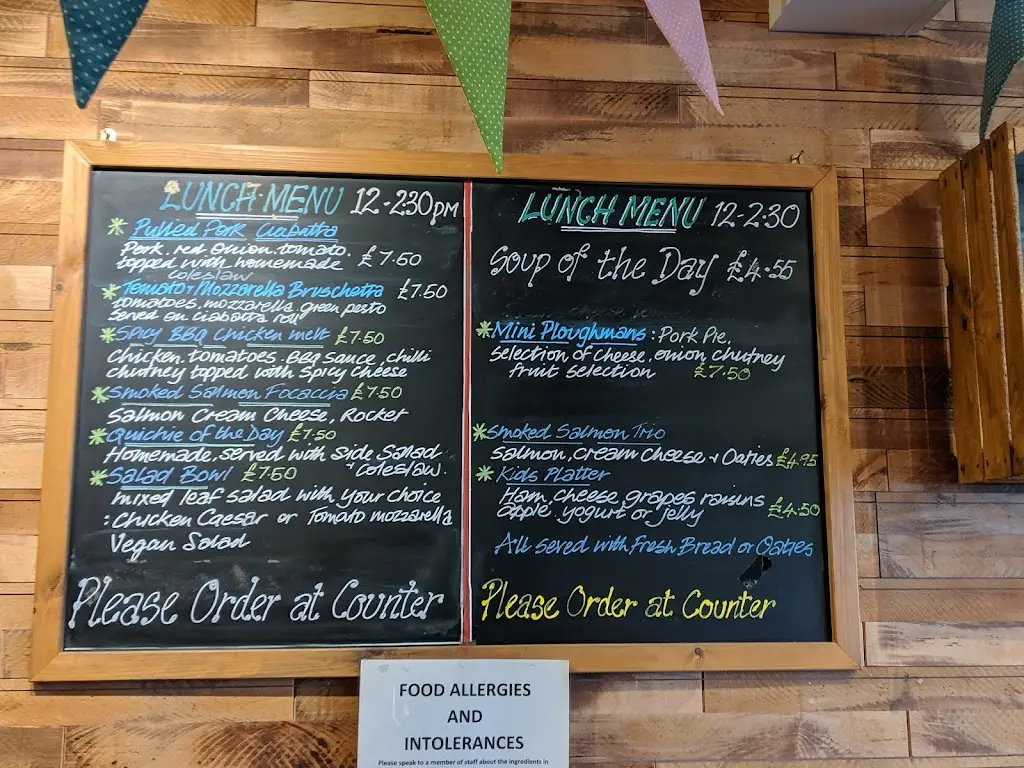 LUNCH MENU 12-230pm
* Pulled Pork Ciabatta
Pork, red onion, tomato,
topped with homemade £7.50
coleslaw
* Tomato + Mozzarella Bruschetta £7.50
tomatoes, mozzarella, green pesto
served on ciabatta roll
* Spicy BBQ Chicken melt £7.50
Chicken, tomatoes, BBQ Sauce, chilli
chutney topped with Spicy Cheese
* Smoked Salmon Focaccia £7.50
Salmon Cream Cheese, Rocket
* Quichie of the Day £7.50
Homemade, served with side Salad
+ coleslaw.
* Salad Bowl £7.50
mixed leaf salad with your choice
: Chicken Caesar or Tomato mozzarella
Vegan Salad
Please Order at Counter
LUNCH MENU 12-2:30
Soup of the Day £4.55
* Mini Ploughmans : Pork Pie,
Selection of cheese, onion chutney
fruit selection £7.50
* Smoked Salmon Trio
Salmon, cream cheese + Oaties £4.95
* Kids Platter
Ham, cheese, grapes, raisins
apple, yogurt or jelly £4.50
All seved with Fresh Bread or Oaties
Please Order at Counter
FOOD ALLERGIES
AND
INTOLERANCES
Please speak to a member of staff about the ingredients in